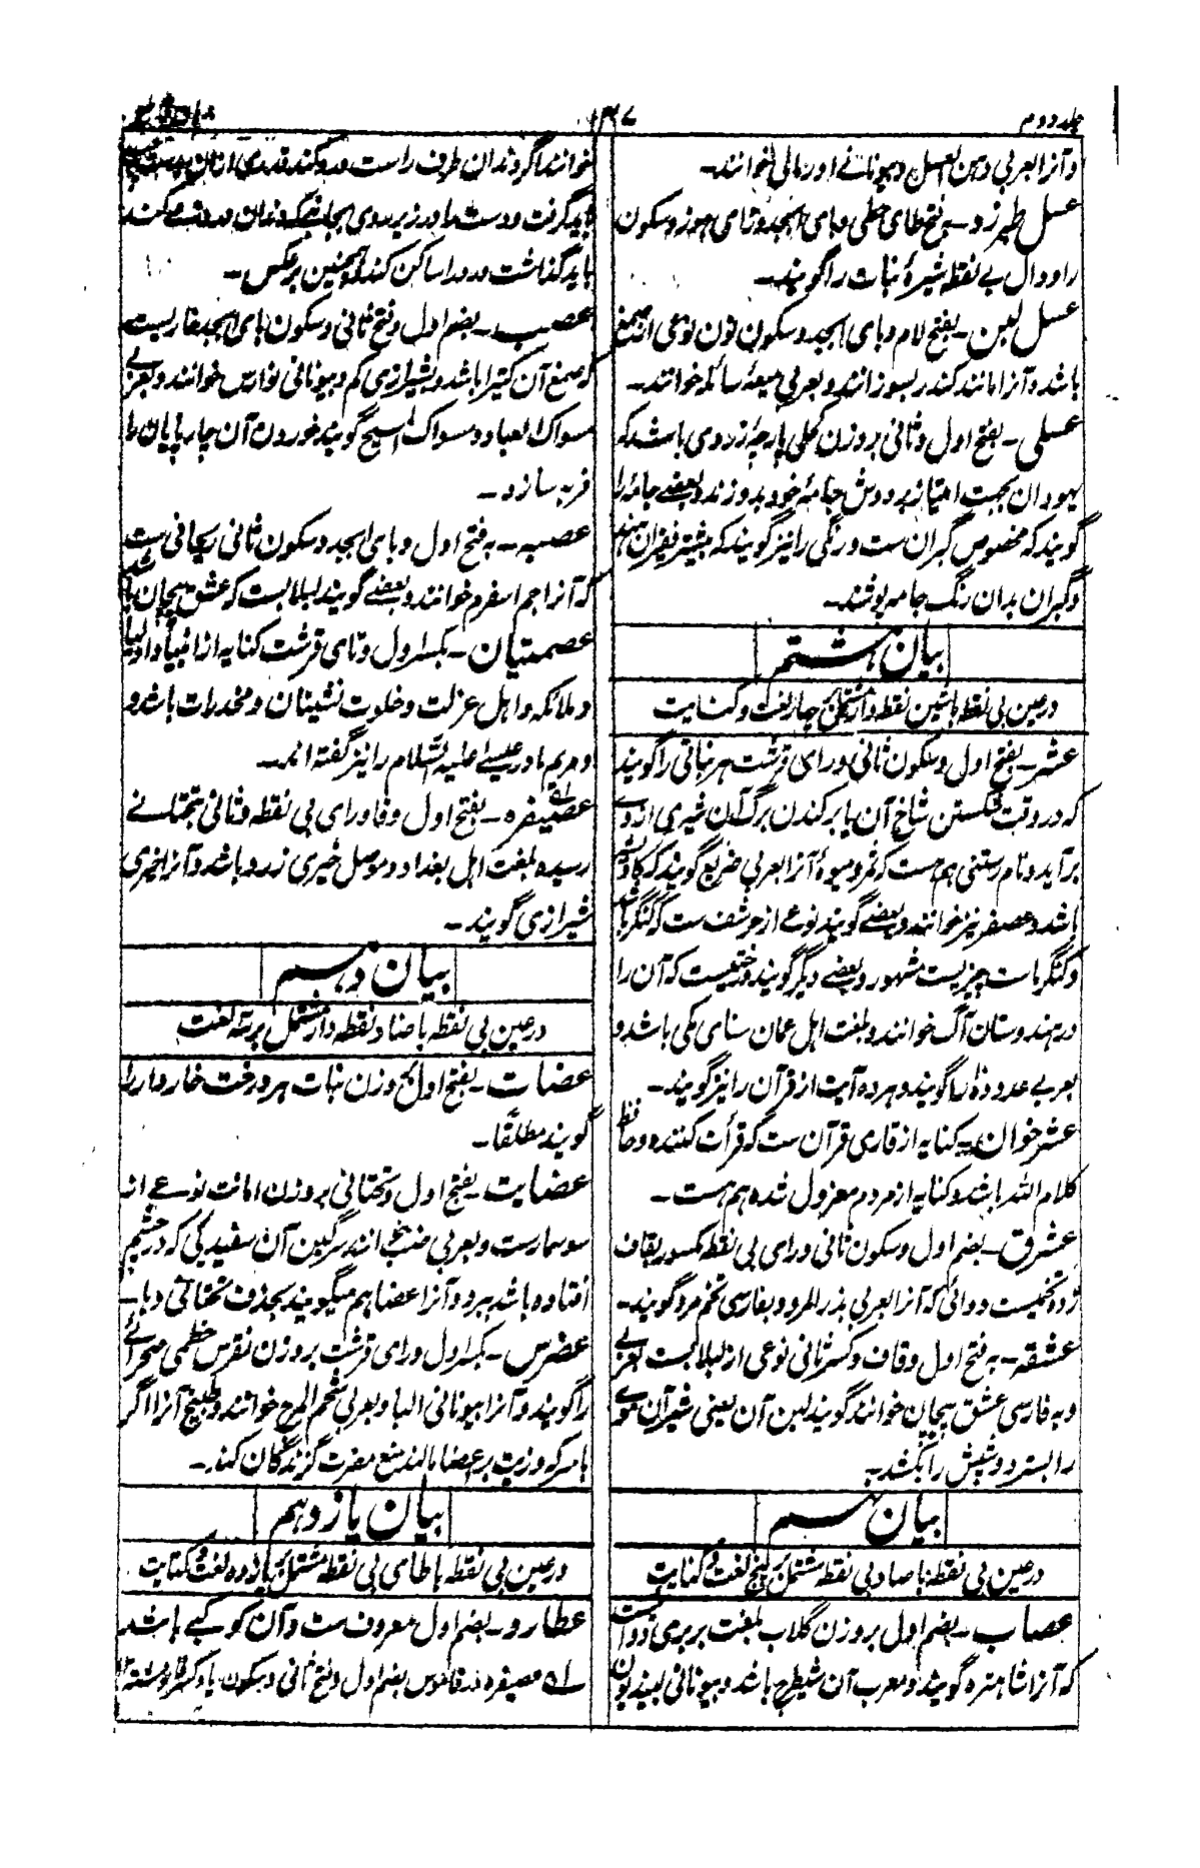 جلد دوم
۱۳۷
برهان قاطع
و آنرا بعربی دهن العسل و بیونانی اورمالی خوانند۔
عسل طبرزد۔ بفتح طای حطی و بای ابجد و زای هوز و سکون
را و دال بے نقطه شیرهٔ نبات را گویند۔
عسل لبن۔ بفتح لام و بای ابجد و سکون نون نوعی از صمغ
باشد و آنرا مانند کندر بسوزانند و بعربی میعهٔ سائله خوانند۔
عسلی۔ بفتح اول و ثانی بر وزن کحلی پارچهٔ زردی باشد که
یهودان بجهت امتیاز بر دوش جامهٔ خود بدوزند و بعضے جامهٔ را
گویند که مخصوص گبران ست و رنگی را نیز گویند که بیشتر فقیران هند
و گبران بدان رنگ جامه پوشند۔
بیان هشتم
در عین بی نقطه با شین نقطه دار مشتمل بر چهار لغت و کنایت
عشر۔ بفتح اول و سکون ثانی و رای قرشت هر نباتی را گویند
که در وقت شکستن شاخ آن یا برکندن برگ آن شیری ازوے
برآید و نام رستنی هم هست که ثمر و میوهٔ آنرا بعربی ضریع گویند که کاو
باشد و عصفر نیز خوانند و بعضے گویند نوعے از حرشف ست که کنگر باشد
و کنگر ماست چیزیست مشهور و بعضے دیگر گویند درختیست که آن را
در هندوستان آگ خوانند و بلغت اهل عمان سنای مکی باشد و
بعربے عدد ده را گویند و هر ده آیت از قرآن را نیز گویند۔
عشر خوان۔ کنایه از قاری قرآن ست که قرأت کننده و حافظ
کلام الله باشد و کنایه از مردم معزول شده هم هست۔
عشرق۔ بضم اول و سکون ثانی و رای بی نقطه مکسور بقاف
زده تخمیست دوائی که آنرا بعربی بذر المرو و بفارسی تخم مرو گویند۔
عشقه۔ به فتح اول و قاف و کسر ثانی نوعی از لبلاب ست بعربے
و به فارسی عشق پیچان خوانند گویند لبن آن یعنی شیر آن موے
را بسترد و شپش را بکشد۔
بیان نهم
در عین بی نقطه با صاد بی نقطه مشتمل بر پنج لغت و کنایت
عصاب۔ بضم اول بر وزن گلاب بلغت بربری دوائیست
که آنرا شاهتره گویند و معرب آن شیطرج باشد و بیونانی لیبدیون
خوانند اگر دندان طرف راست درد کند قدری ازان
باید گرفت و دست را در زیر روی بجانبیکه دندان درد نمی کند
باید گذاشت درد را ساکن کند و همچنین برعکس۔
عصب۔ بضم اول و فتح ثانی و سکون بای ابجد خاریست
که صمغ آن کتیرا باشد و بشیرازی کم و بیونانی نوارس خوانند و بعربے
مسواک العباد و مسواک المسیح گویند خوردن آن چارپایان را
فربه سازد۔
عصبه۔ به فتح اول و بای ابجد و سکون ثانی ریحانی ست
که آنرا جم اسفرم خوانند و بعضے گویند لبلاب ست که عشق پیچان باشد
عصمتیان۔ بکسر اول و تای قرشت کنایه از انبیا و اولیا
و ملائکه و اهل عزلت و خلوت نشینان و مخدرات باشد و
و مریم مادر عیسے علیه السلام را نیز گفته اند۔
عصیفره۔ بفتح اول و فا و رای بی نقطه و ثانی بتحتانے
رسیده بلغت اهل بغداد و موصل خیری زرد باشد و آنرا خیری
شیرازی گویند۔
بیان دهم
در عین بی نقطه با ضاد نقطه دار مشتمل بر سه لغت
عضات۔ بفتح اول بر وزن نبات هر درخت خاردار را
گویند مطلقًا۔
عضایت۔ بفتح اول و تحتانی بر وزن امانت نوعے از
سوسمارست و بعربی ضب خوانند سرگین آن سفیدیی که در چشم
افتاده باشد ببرد و آنرا عضا هم میگویند بحذف تحتانی و تا۔
عضرس۔ بکسر اول و رای قرشت بر وزن نقرس خطمی صحرائے
را گویند و آنرا بیونانی الیبا و بعربی شحم المرج خوانند و طبیخ آنرا اگر
با سرکه و زیت بر اعضا مالند منع مضرت گزندگان کند۔
بیان یازدهم
در عین بی نقطه با طای بی نقطه مشتمل بر یازده لغت و کنایت
عطارد۔ بضم اول معروف ست و آن کوکبے باشد
له عصیفره در قاموس بضم اول و فتح ثانی و سکون یا و کسر فا نوشته